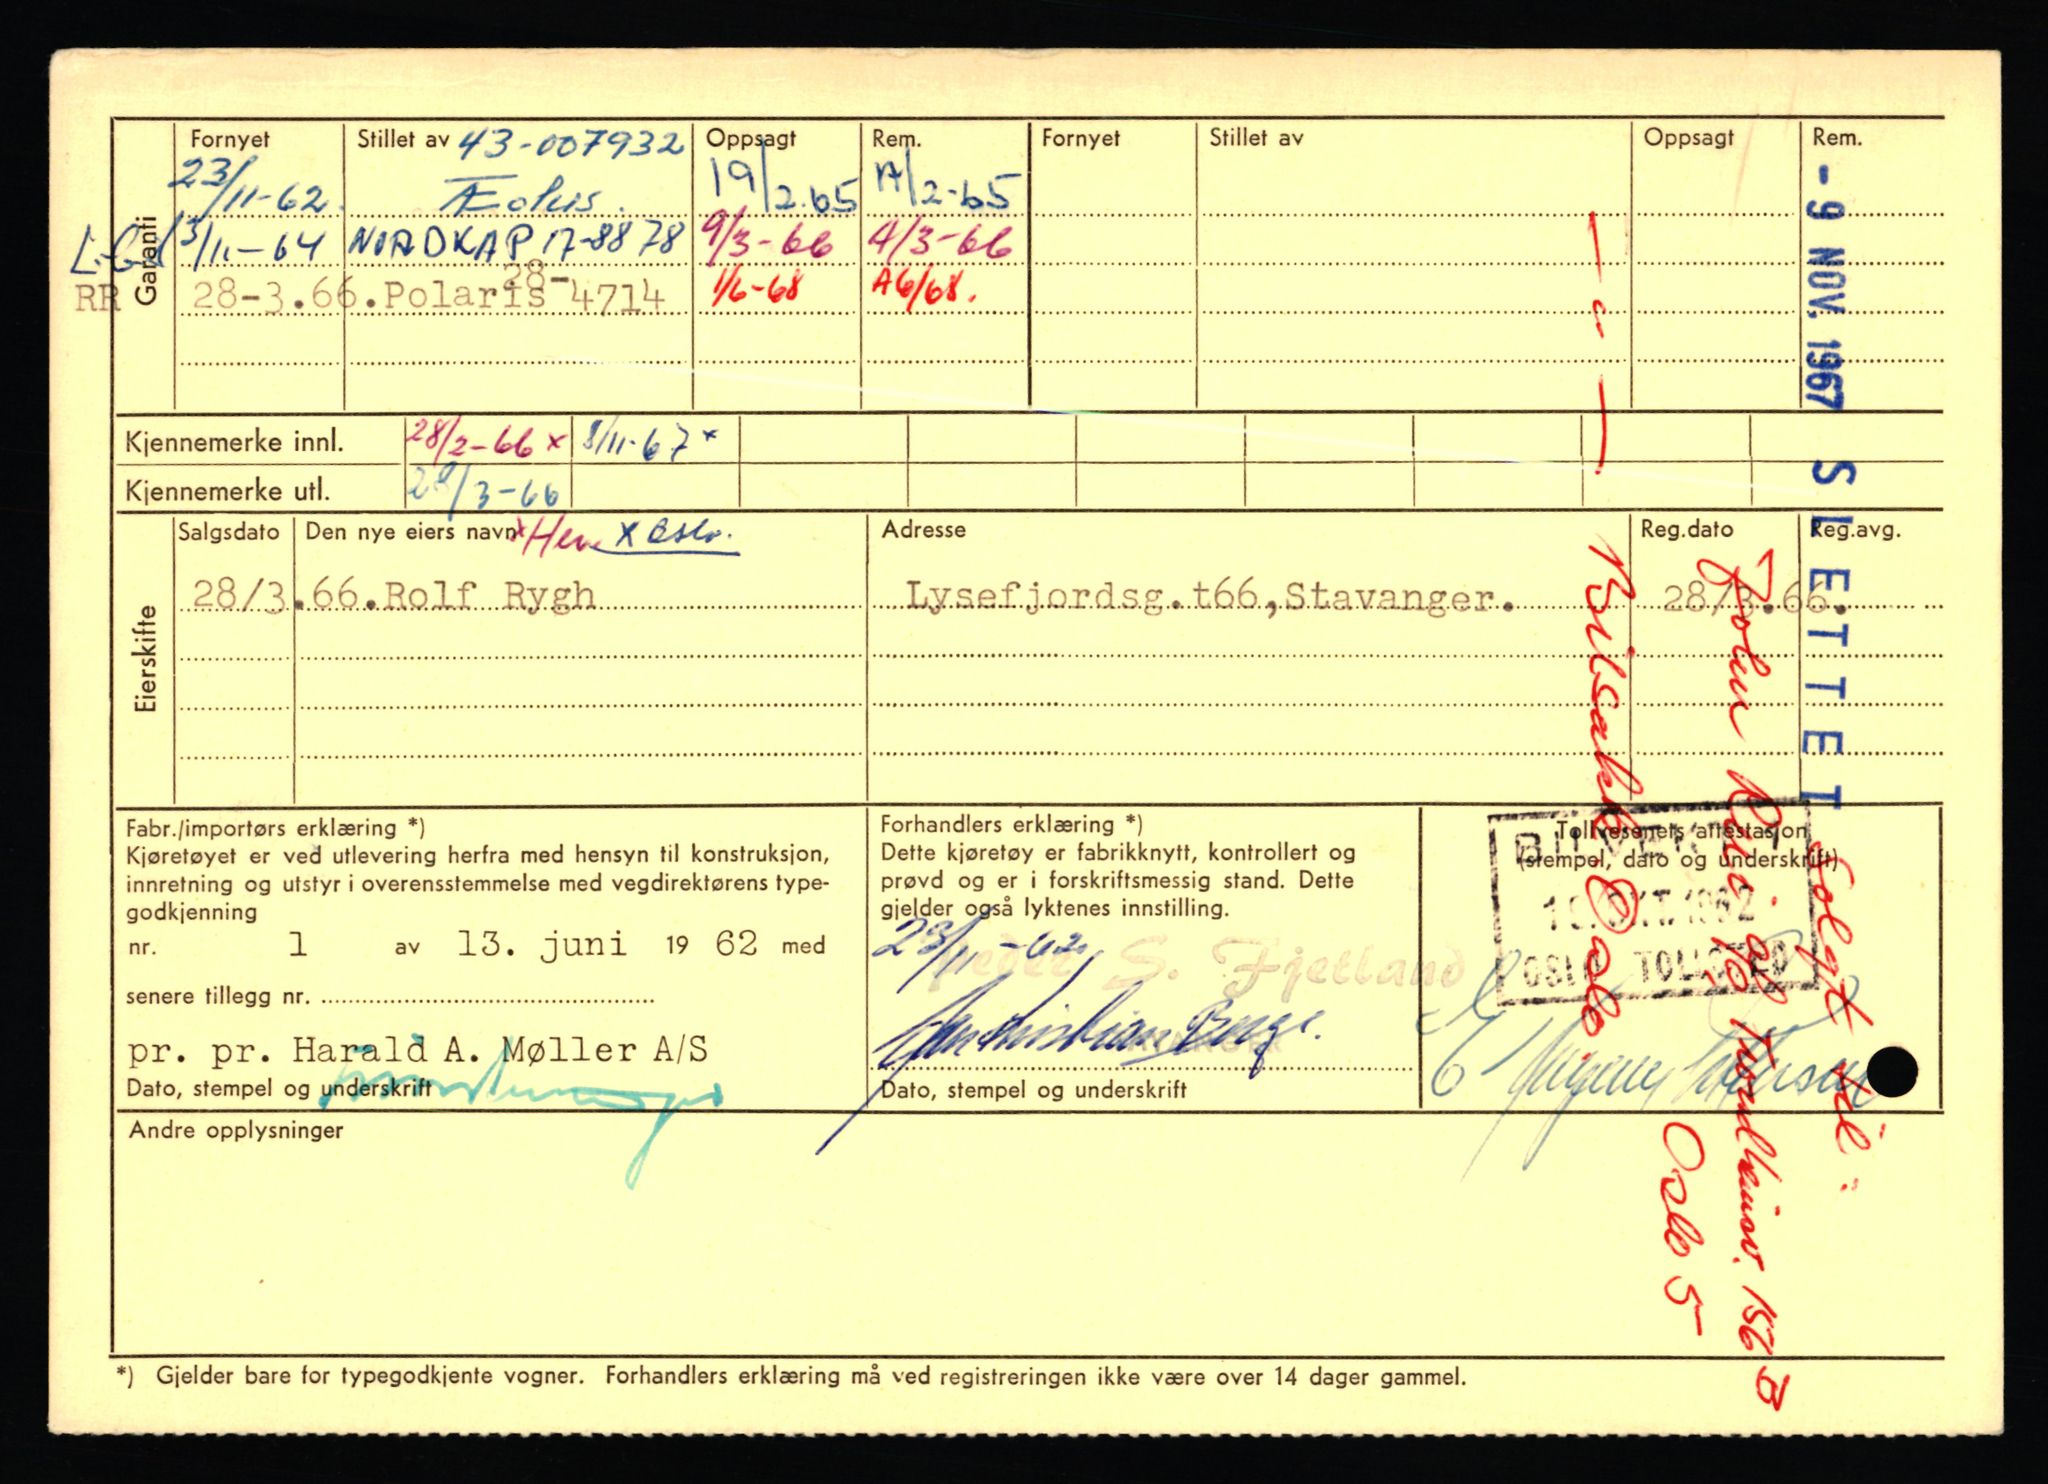 Fornyet Stillet av 43-007932 Oppsagt Rem. Fornyet Stillet av Oppsagt Rem.
Garanti
23/11-62. Æolus. 19/2.65 A/2-65
3/11-64 NORDKAP 17-8878 9/3-66 A/3-66
RR 28-3.66. Polaris 28-4714 1/6-68 A6/68.
- 9 NOV. 1967 SLETTET
Kjennemerke innl. 28/2-66 x 8/11-67 x
Kjennemerke utl. 28/3-66
Eierskifte
Salgsdato Den nye eiers navn x Her x Oslo. Adresse Reg.dato Reg.avg.
28/3.66. Rolf Rygh Lysefjordsg.t66,Stavanger. 28/3.66.
Fabr./importørs erklæring *)
Kjøretøyet er ved utlevering herfra med hensyn til konstruksjon,
innretning og utstyr i overensstemmelse med vegdirektørens type-
godkjenning
nr. 1 av 13. juni 19 62 med
senere tillegg nr.
pr. pr. Harald A. Møller A/S
Dato, stempel og underskrift
Forhandlers erklæring *)
Dette kjøretøy er fabrikknytt, kontrollert og
prøvd og er i forskriftsmessig stand. Dette
gjelder også lyktenes innstilling.
23/11-62
Peder S. Fjetland
Dato, stempel og underskrift
Tollvesenets attestasjon
(stempel, dato og underskrift)
OSLO TOLLSTED
Solgt til:
Trondheimsv. 156 B
Oslo 5
Bilsakk. Oslo
Andre opplysninger
*) Gjelder bare for typegodkjente vogner. Forhandlers erklæring må ved registreringen ikke være over 14 dager gammel.